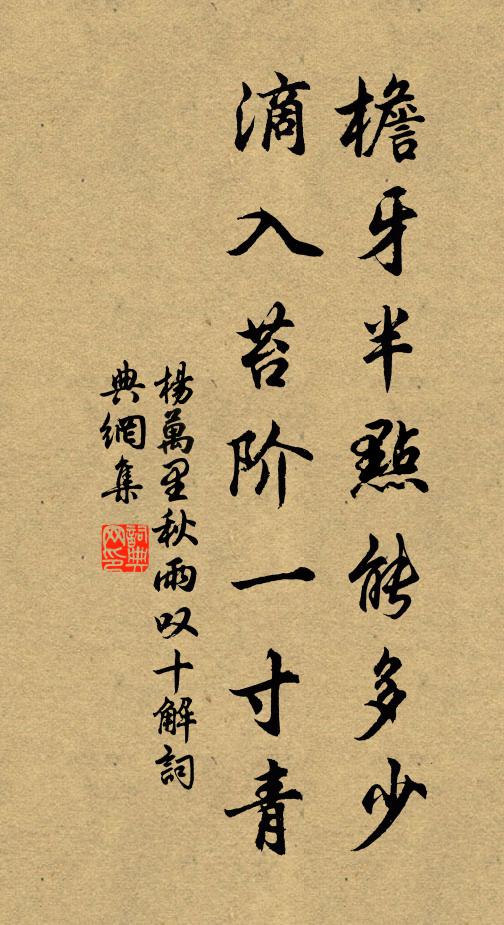 檐牙半點能多少
滴入苔阶一寸青
楊萬里秋雨叹十解詞
典網集
詞典
网印